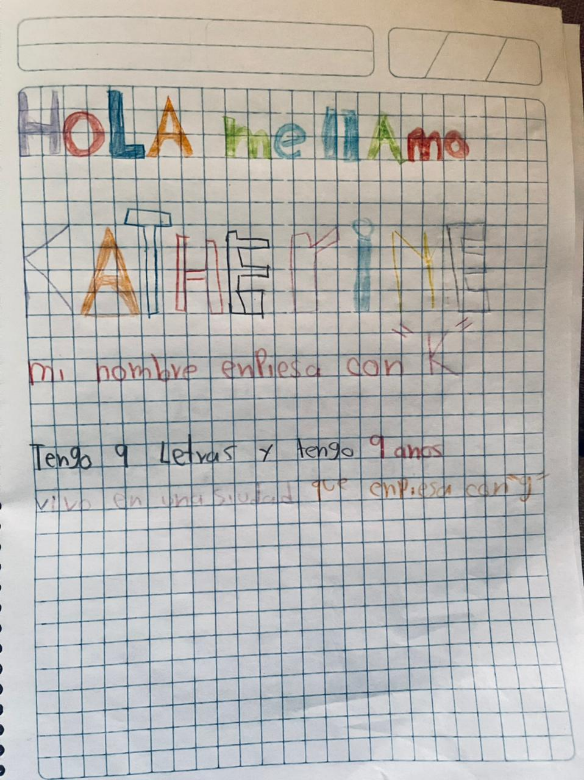 HOLA me llAmo
KATHEriNE
mi nombre enpiesa con "K"
Tengo 9 Letras y tengo 9 anos
vivo en una siudad que enpiesa con "g"